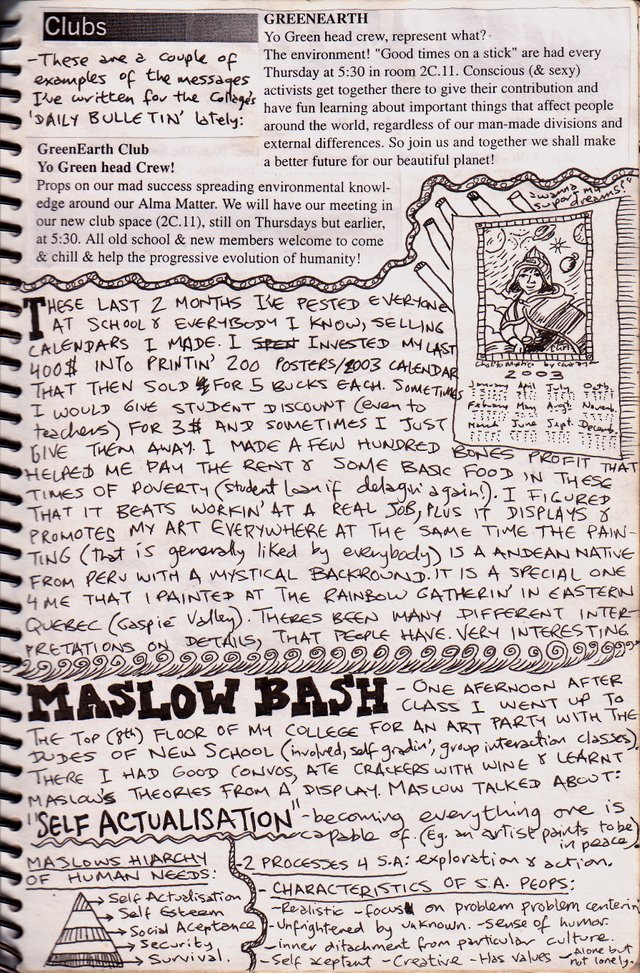 Clubs
-These are a couple of
examples of the messages
I've written for the College's
'DAILY BULLETIN' lately:
GREENEARTH
Yo Green head crew, represent what?
The environment! "Good times on a stick" are had every
Thursday at 5:30 in room 2C.11. Conscious (& sexy)
activists get together there to give their contribution and
have fun learning about important things that affect people
around the world, regardless of our man-made divisions and
external differences. So join us and together we shall make
a better future for our beautiful planet!
GreenEarth Club
Yo Green head Crew!
Props on our mad success spreading environmental knowl-
edge around our Alma Matter. We will have our meeting in
our new club space (2C.11), still on Thursdays but earlier,
at 5:30. All old school & new members welcome to come
& chill & help the progressive evolution of humanity!
"wanna
support my
dreams?"
2003
January April July Octb.
February May Augst Novemb.
March June Sept. Decemb.
THESE LAST 2 MONTHS I'VE PESTED EVERYONE
AT SCHOOL & EVERYBODY I KNOW, SELLING
CALENDARS I MADE. I INVESTED MY LAST
400$ INTO PRINTIN' 200 POSTERS/2003 CALENDAR
THAT THEN SOLD FOR 5 BUCKS EACH. SOMETIMES
I WOULD GIVE STUDENT DISCOUNT (even to
teachers) FOR 3$ AND SOMETIMES I JUST
GIVE THEM AWAY. I MADE A FEW HUNDRED BONES PROFIT THAT
HELPED ME PAY THE RENT & SOME BASIC FOOD IN THESE
TIMES OF POVERTY (student loan if delayin' again!). I FIGURED
THAT IT BEATS WORKIN' AT A REAL JOB, PLUS IT DISPLAYS &
PROMOTES MY ART EVERYWHERE AT THE SAME TIME THE PAIN-
TING (that is generally liked by everybody) IS A ANDEAN NATIVE
FROM PERU WITH A MYSTICAL BACKROUND. IT IS A SPECIAL ONE
4 ME THAT I PAINTED AT THE RAINBOW GATHERIN' IN EASTERN
QUEBEC (Gaspie Valley). THERES BEEN MANY DIFFERENT INTER-
PRETATIONS ON DETAILS, THAT PEOPLE HAVE. VERY INTERESTING.
MASLOW BASH - ONE AFERNOON AFTER
CLASS I WENT UP TO
THE TOP (8th) FLOOR OF MY COLLEGE FOR AN ART PARTY WITH THE
DUDES OF NEW SCHOOL (involved, self gradin', group interaction classes)
THERE I HAD GOOD CONVOS, ATE CRACKERS WITH WINE & LEARNT
MASLOW'S THEORIES FROM A DISPLAY. MASLOW TALKED ABOUT:
"SELF ACTUALISATION" - becoming everything one is
capable of. (Eg. an artist paints to be
in peace)
MASLOWS HIARCHY
OF HUMAN NEEDS:
Self Actualisation
Self Esteem
Social Aceptance
Security
Survival.
-2 PROCESSES 4 S.A: exploration & action.
- CHARACTERISTICS OF S.A. PEOPS:
-Realistic -focus on problem problem centerin
-Unfrightened by unknown. -Sense of humor.
-inner ditachment from particular culture.
-Self aceptant -Creative -Has values -alone but
not lonely.